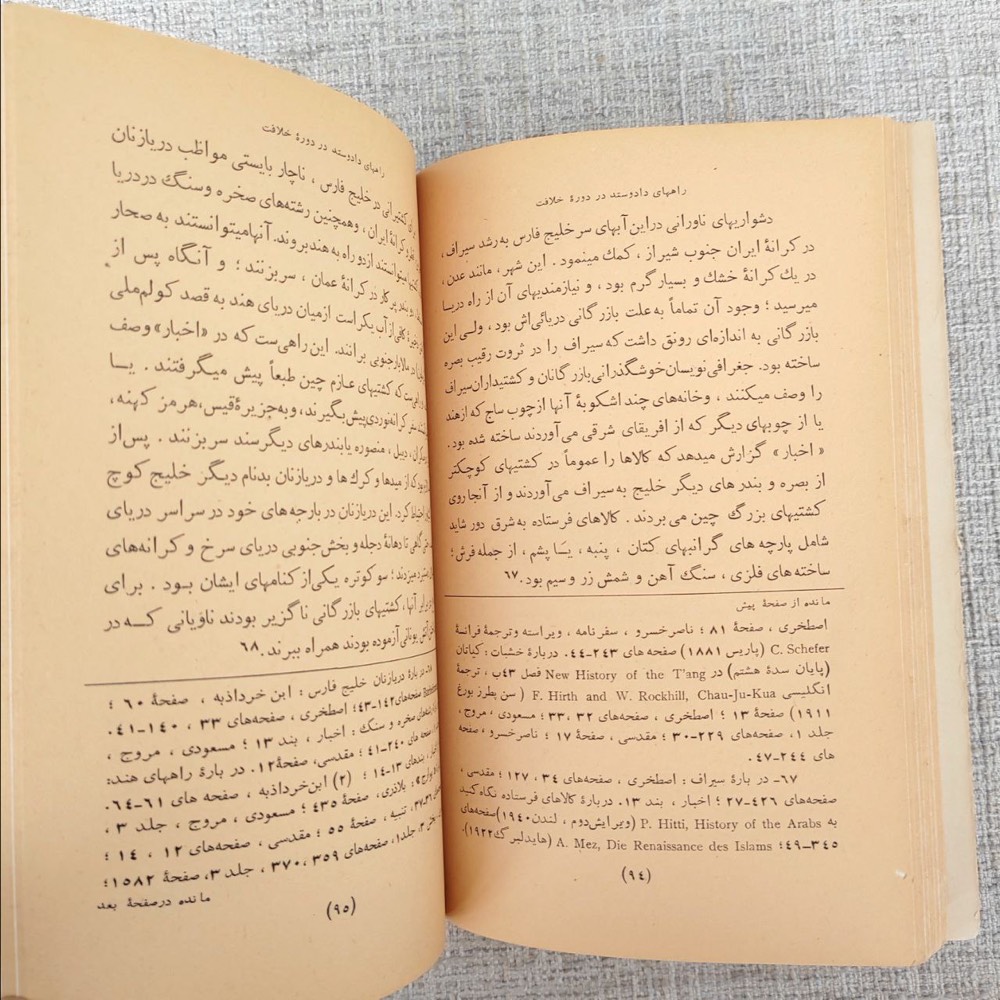 راههای دادوستد در دورهٔ خلافت
دشواریهای ناورانی دراین آبهای سر خلیج فارس به رشد سیراف،
در کرانهٔ ایران جنوب شیراز، کمك مینمود. این شهر، مانند عدن،
در یك کرانهٔ خشك و بسیار گرم بود، و نیازمندیهای آن از راه دریا
میرسید؛ وجود آن تماماً به علت بازرگانی دریائی‌اش بود، ولی این
بازرگانی به اندازه‌ای رونق داشت که سیراف را در ثروت رقیب بصره
ساخته بود. جغرافی‌نویسان خوشگذرانی بازرگانان و کشتیداران سیراف
را وصف میکنند، وخانه‌های چند اشکوبهٔ آنها ازچوب ساج که ازهند
یا از چوبهای دیگر که از افریقای شرقی می‌آوردند ساخته شده بود.
«اخبار» گزارش میدهد که کالاها را عموماً در کشتیهای کوچکتر
از بصره و بندرهای دیگر خلیج به سیراف می‌آوردند و از آنجا روی
کشتیهای بزرگ چین می‌بردند. کالاهای فرستاده به شرق دور شاید
شامل پارچه‌های گرانبهای کتان، پنبه، یسا پشم، از جمله فرش؛
ساخته‌های فلزی، سنگ آهن و شمش زر و سیم بود.۶۷
مانده از صفحهٔ پیش
اصطخری، صفحهٔ ۸۱؛ ناصرخسرو، سفرنامه، ویراسته وترجمهٔ فرانسهٔ
C. Schefer (پاریس ۱۸۸۱) صفحه‌های ۲۴۳-۴۴. دربارهٔ خشبات: کیاتان
(پایان سدهٔ هشتم) در New History of the T'ang فصل ۴۳ب، ترجمهٔ
انگلیسی F. Hirth and W. Rockhill, Chau-Ju-Kua (سن بطرز بورغ
۱۹۱۱) صفحهٔ ۱۳؛ اصطخری، صفحه‌های ۳۲، ۳۳؛ مسعودی، مروج،
جلد ۱، صفحه‌های ۲۲۹-۳۰؛ مقدسی، صفحهٔ ۱۷؛ ناصرخسرو، صفحه
های ۲۴۴-۴۷.
۶۷- در بارهٔ سیراف: اصطخری، صفحه‌های ۳۴، ۱۲۷؛ مقدسی،
صفحه‌های ۴۲۶-۲۷؛ اخبار، بند ۱۳. دربارهٔ کالاهای فرستاده نگاه کنید
به P. Hitti, History of the Arabs (ویرایش دوم، لندن ۱۹۴۰) صفحه‌های
۳۴۵-۴۹؛ A. Mez, Die Renaissance des Islams (هایدلبرگ ۱۹۲۲).
(۹۴)
راههای دادوستد در دورهٔ خلافت
کشتیرانی در خلیج فارس، ناچار بایستی مواظب دریازنان
کرانهٔ ایران، وهمچنین رشته‌های صخره وسنگ دردریا
میتوانستند ازدو راه به هند بروند. آنها میتوانستند به صحار
در کرانهٔ عمان، سربزنند؛ و آنگاه پس از
کافی از آب یکراست ازمیان دریای هند به قصد کولم‌ملی
در مالابار جنوبی برانند. این راهی‌ست که در «اخبار» وصف
که کشتیهای عازم چین طبعاً پیش میگرفتند. یا
سفر کرانه‌نوردی پیش بگیرند، وبه جزیرهٔ قیس، هرمز کهنه،
دیبل، منصوره یابندرهای دیگر سند سربزنند. پس از
که از میدها و کرك‌ها و دریازنان بدنام دیگر خلیج کوچ
احتیاط کرد. این دریازنان در بارجه‌های خود در سراسر دریای
گاهی تا دهانهٔ دجله و بخش جنوبی دریای سرخ و کرانه‌های
میزدند؛ سوکوتره یکی از کنامهای ایشان بود. برای
آنها، کشتیهای بازرگانی ناگزیر بودند ناویانی که در
آتش یونانی آزموده بودند همراه ببرند.۶۸
۶۸- در بارهٔ دریازنان خلیج فارس: ابن خرداذبه، صفحهٔ ۶۰؛
صفحه‌های ۱۴۲-۴۳؛ اصطخری، صفحه‌های ۳۳، ۱۴۰-۴۱.
صخره و سنگ: اخبار، بند ۱۳؛ مسعودی، مروج،
صفحه های ۲۴۰-۴۱؛ مقدسی، صفحهٔ ۱۲. در بارهٔ راههای هند:
بندهای ۱۳-۱۴؛ (۲) ابن‌خرداذبه، صفحه های ۶۱-۶۴.
بلاذری، صفحهٔ ۴۳۵؛ مسعودی، مروج، جلد ۳،
تنبیه، صفحهٔ ۵۵؛ مقدسی، صفحه‌های ۱۲، ۱۴؛
جلد ۱، صفحه‌های ۳۵۹، ۳۷۰، جلد ۳، صفحهٔ ۱۵۸۲؛
مانده درصفحهٔ بعد
(۹۵)